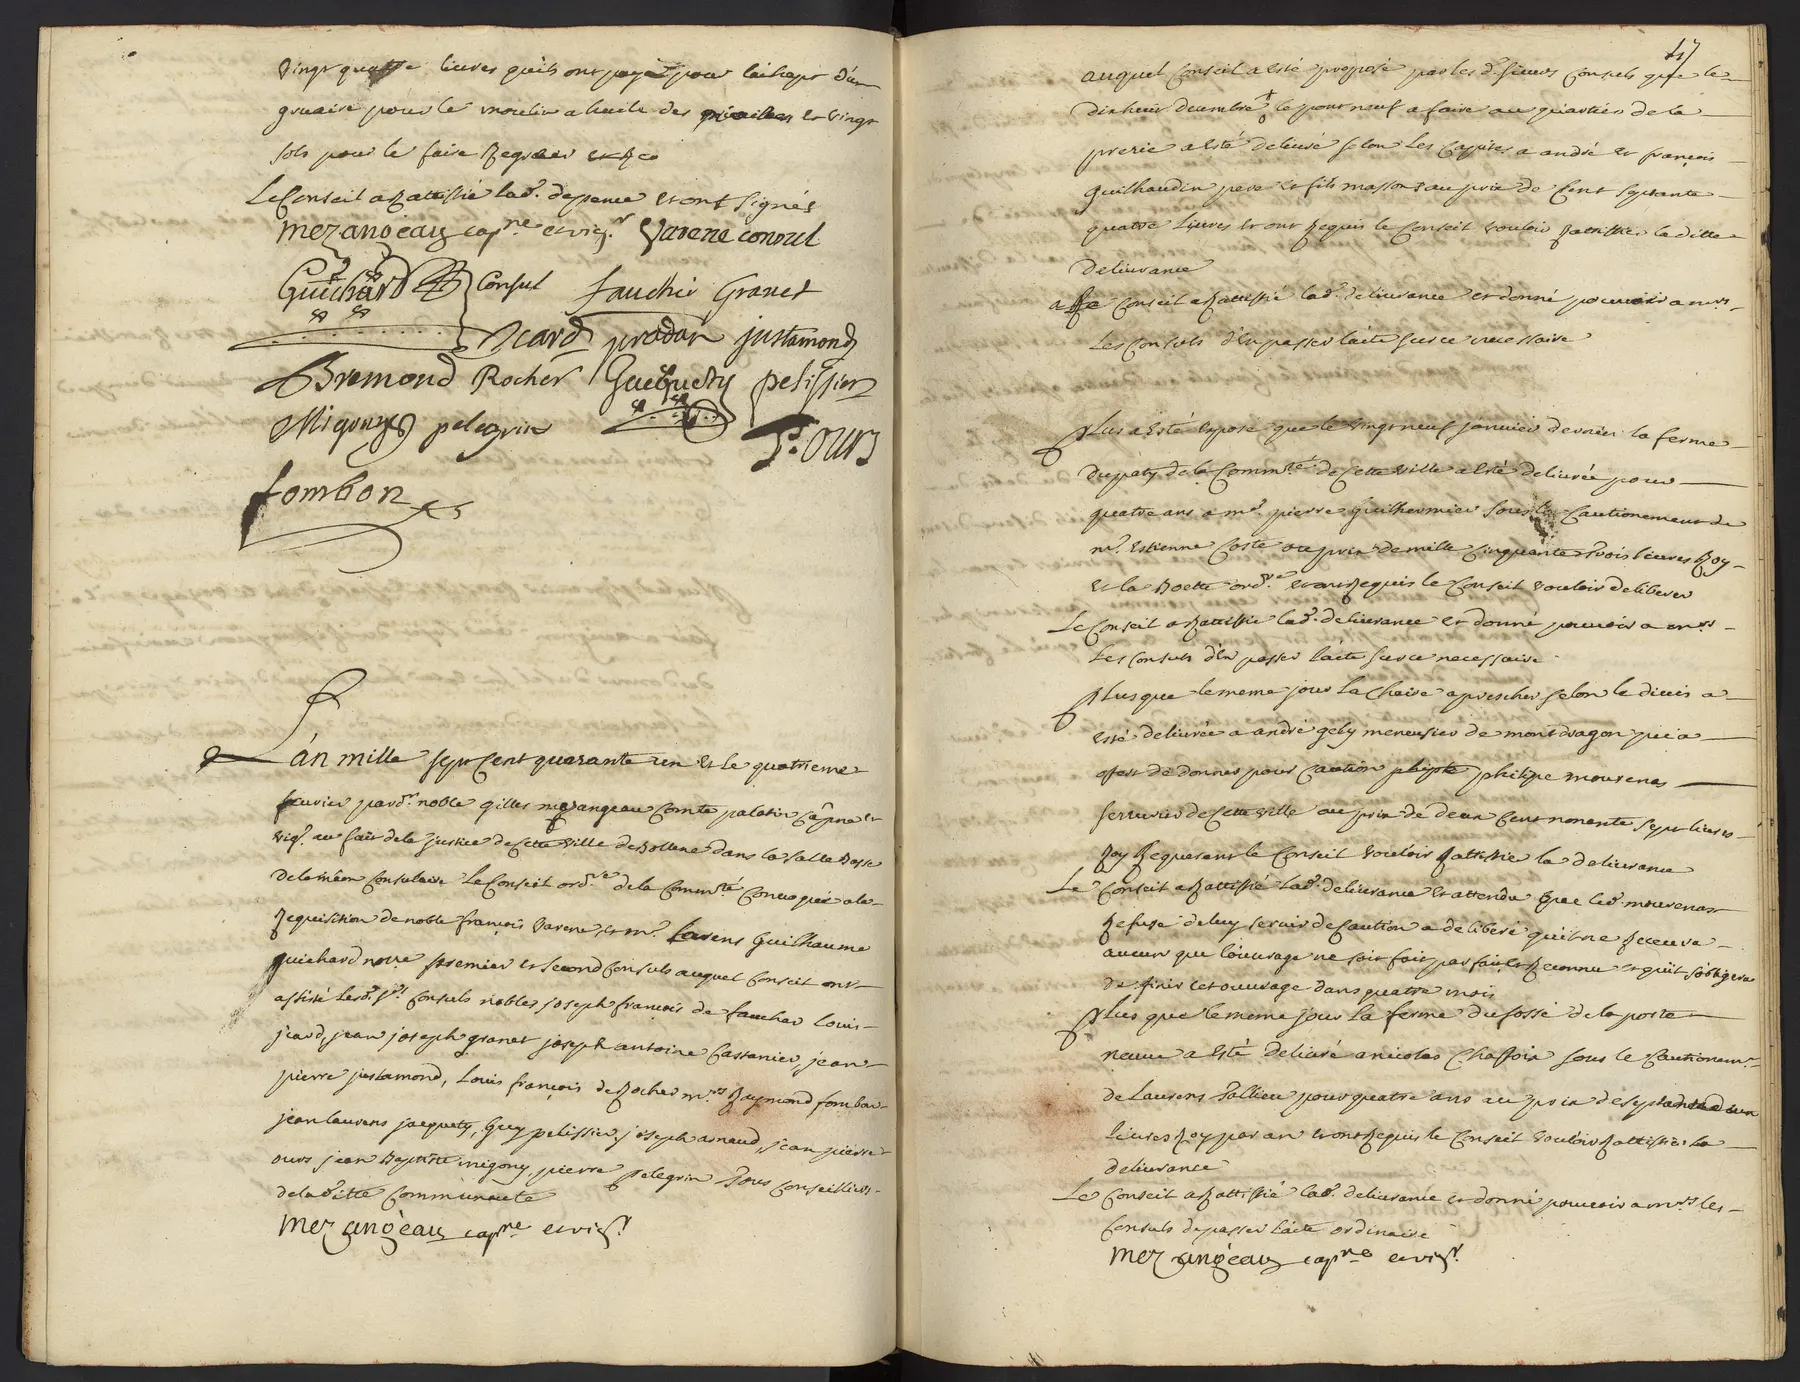 vingt quatre livres quils ont payé pour l'achapt d'un
gruaire pour le moulin a huile des et vingt
sols pour le faire
Le Conseil a rattiffié lad. depence et ont signés
Mezangeau capne et vigr Varene consul
Guichard Consul faucher Granet
Icard pradon justamond
Bremond Rocher Guesquety pelissier
Migony pelegrin Js. Ours
fombon
L'an mille sept cent quarante un et le quatrieme
fevrier pardt noble gilles mezangeau comte palatin capne et
vigr au fait de la justice de cette ville de Bollene dans la salle basse
de la maon consulaire Le Conseil ordre de la Commté convoqué a la
requisition de noble françois varene et mr laurens Guilhaume
guichard nore premier et second consuls auquel conseil ont
assisté lesd. srs consuls nobles joseph françois de faucher louis
jcard, jean joseph granet joseph antoine Castanier, jean
pierre justamond, Louis françois de Rocher mrs Raymond fombon
jean laurens jaquety, Guy pelissier, joseph arnaud, jean pierre
ours jean baptiste migony, pierre pelegrin tous conseillers
de la ditte communauté
Mezangeau capne et vigr
47
auquel Conseil a esté proposé par les d. sieurs Consuls que le
dixhuit decembre le pont neuf a faire au quartier de la
prerie a esté delivré selon les a andré et françois
guilhaudin pere et fils masson au prix de cent septante
quatre livres et ont requis le Conseil vouloir rattiffier la ditte
delivrance
Le Conseil a rattiffié lad. delivrance et donné pouvoir a mrs
Les Consuls d'en passer l'acte sur ce necessaire
Plus a esté exposé que le vingt neuf janvier dernier la ferme
du paty de la Commté de cette ville a esté delivrée pour
quatre ans a mr pierre guilhermier sous le cautionement de
mr Estienne Coste au prix de mille cinquante trois livres Roy
et la Boette ordre et ont requis le Conseil vouloir deliberer
Le Conseil a rattiffié lad. delivrance et donné pouvoir a mrs
Les Consuls d'en passer l'acte sur ce necessaire
Plus que le meme jour la chaire a prescher selon le divis a
esté delivrée a andré gely menusier de montdragon qui a
offert de donner pour caution philipe mourenas
serrurier de cette ville au prix de deux cent nonante sept livres
Roy requerant le Conseil vouloir rattiffier la delivrance
Le Conseil a rattiffié lad. delivrance et attendu que led. mourenas
refuse de luy servir de caution a deliberé quil ne recevra
aucun que l'ouvrage ne soit fait parfait et reconnu et quil s'obligera
de finir cet ouvrage dans quatre mois
Plus que le meme jour la ferme du fossé de la porte
neuve a esté delivré a nicolas Chaffoix sous le cautionemt
de Laurens Tallieu pour quatre ans au prix de
livres Roy par an et ont requis le Conseil vouloir rattiffier la
delivrance
Le Conseil a rattiffié lad. delivrance et donné pouvoir a mrs les
Consuls de passer l'acte ordinaire
Mezangeau capne et vigr